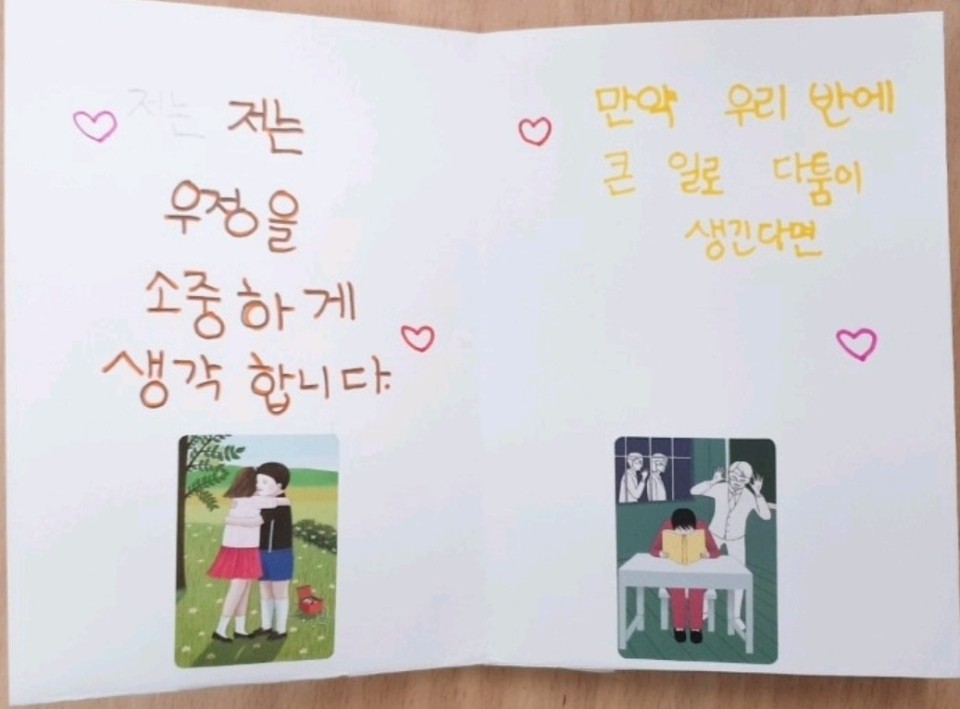 저는 저는
우정을
소중하게
생각 합니다.
만약 우리 반에
큰 일로 다툼이
생긴다면